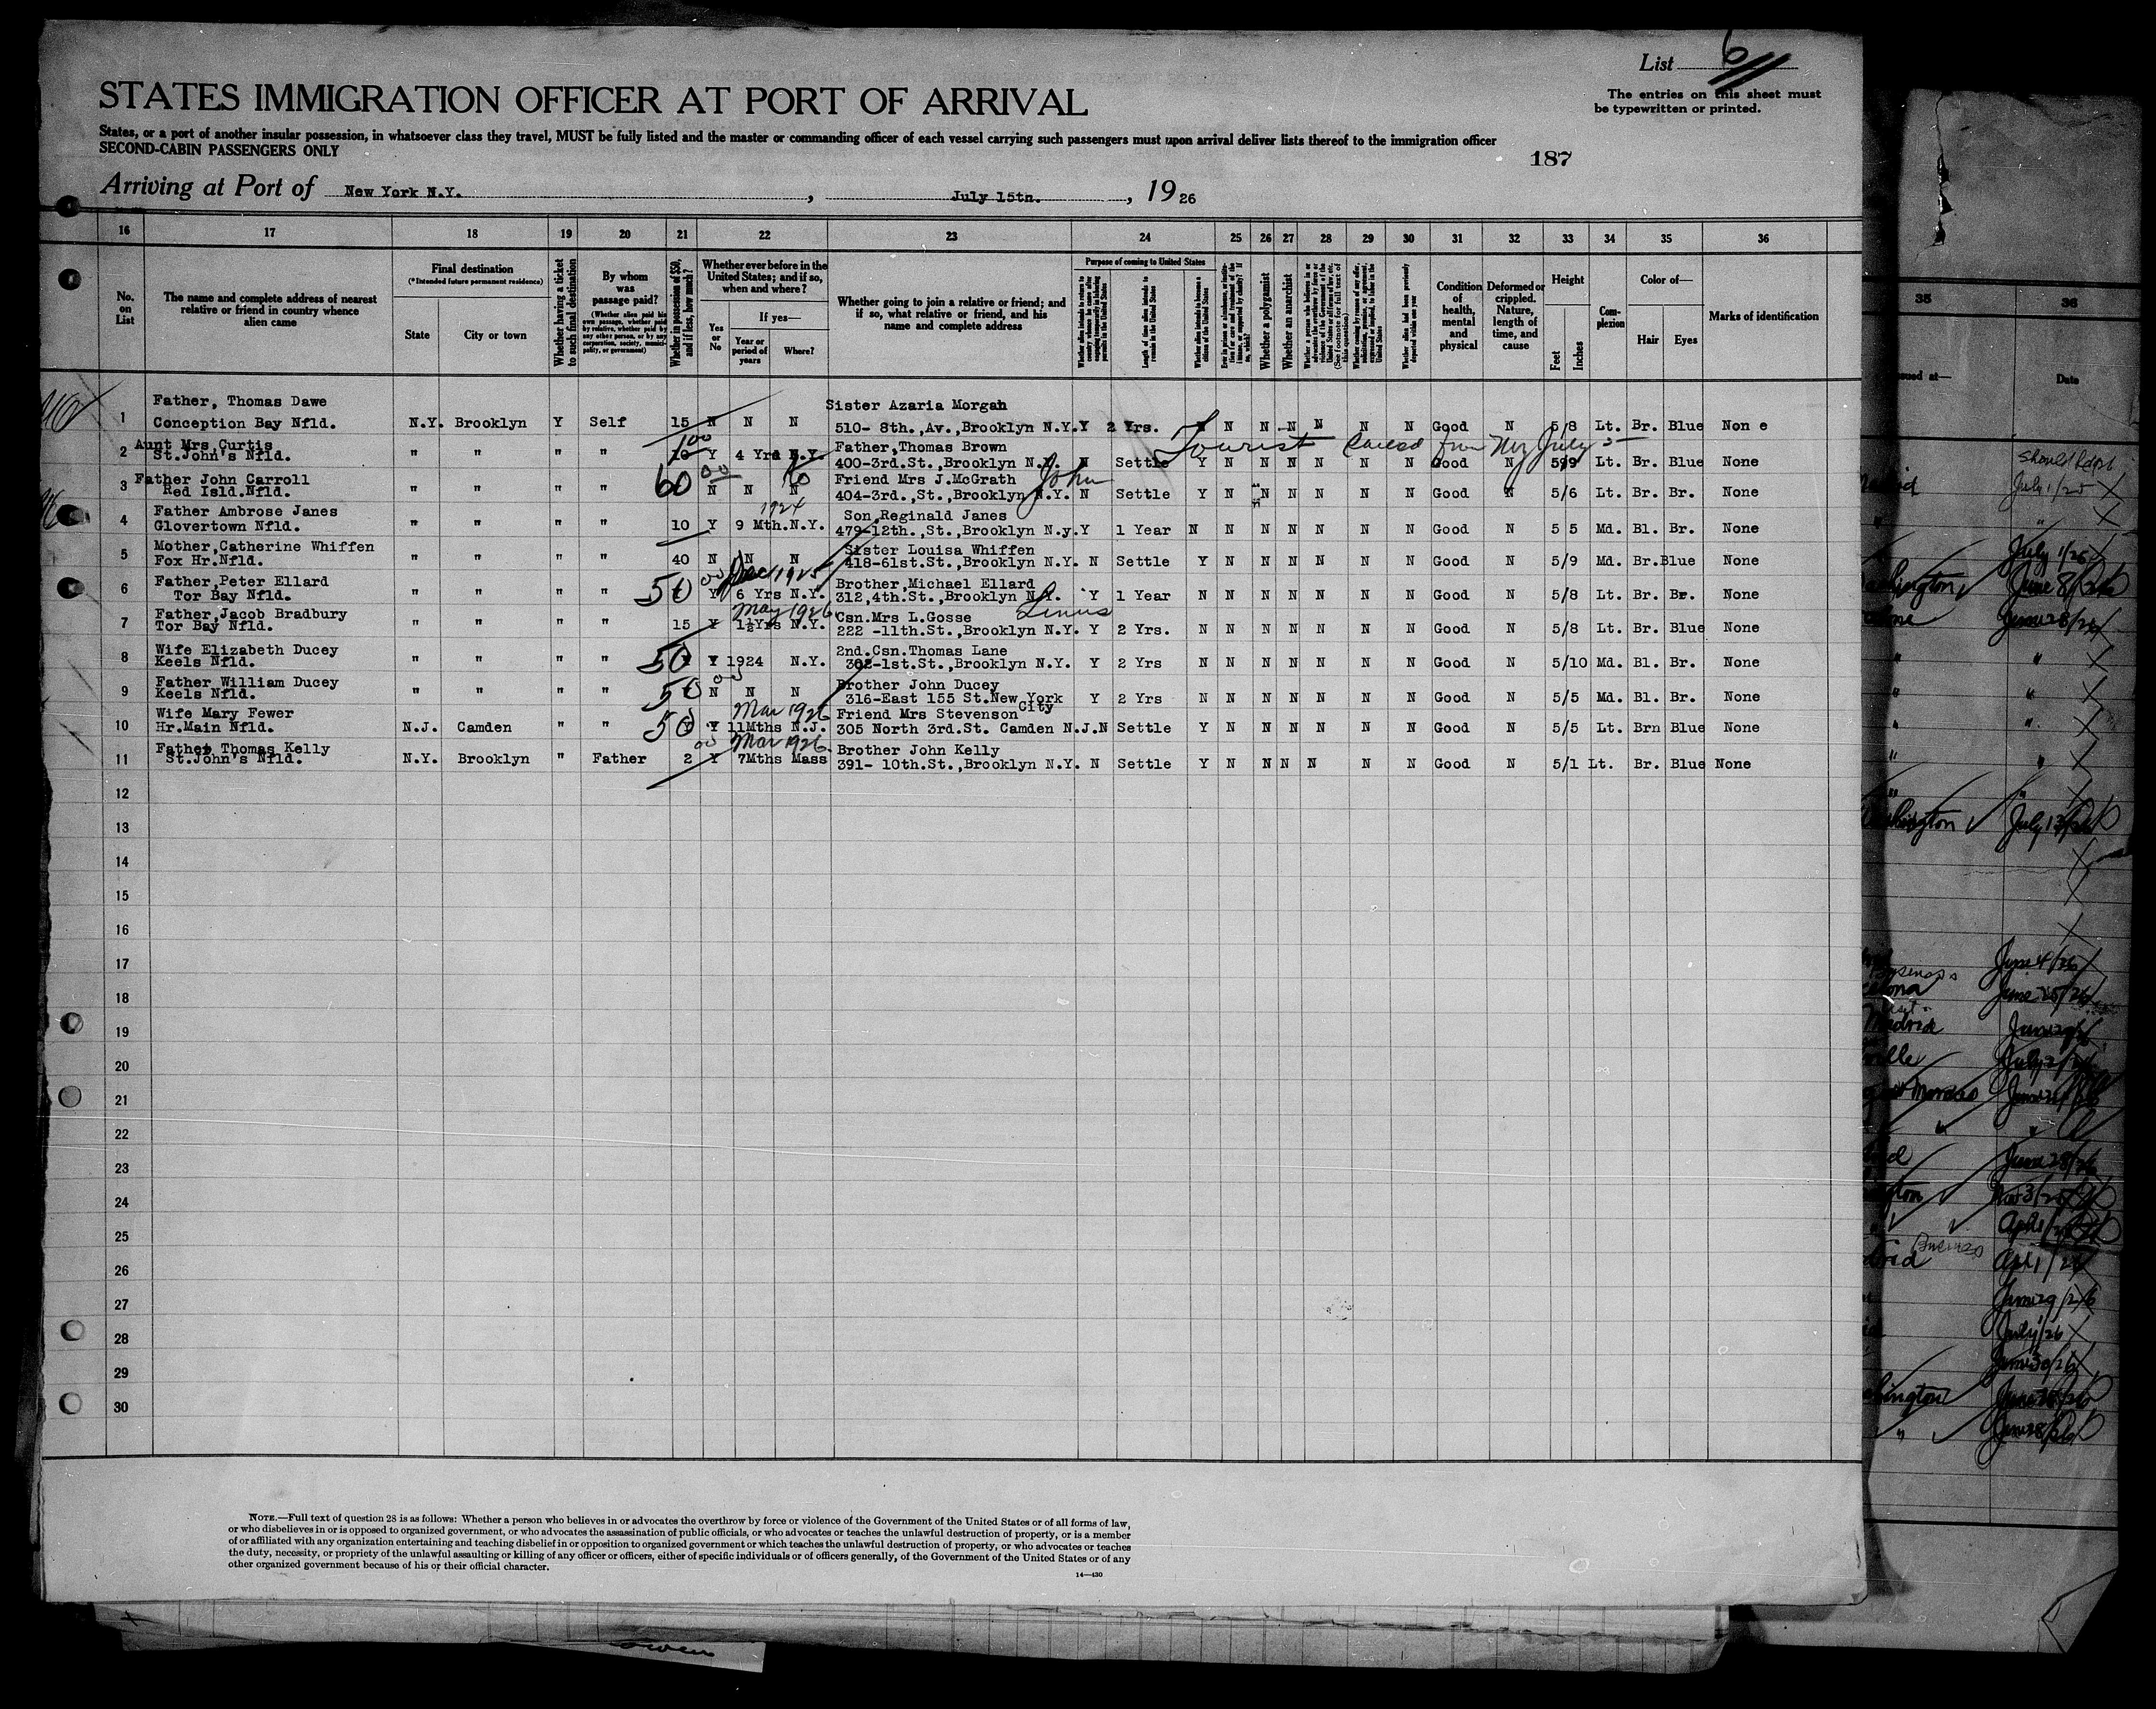 List 6
The entries on this sheet must
be typewritten or printed.
STATES IMMIGRATION OFFICER AT PORT OF ARRIVAL
States, or a port of another insular possession, in whatsoever class they travel, MUST be fully listed and the master or commanding officer of each vessel carrying such passengers must upon arrival deliver lists thereof to the immigration officer
SECOND-CABIN PASSENGERS ONLY
187
Arriving at Port of New York N.Y. , July 15th. , 19 26
16 17 18 19 20 21 22 23 24 25 26 27 28 29 30 31 32 33 34 35 36
No. on List
The name and complete address of nearest relative or friend in country whence alien came
Final destination
(*Intended future permanent residence)
State
City or town
Whether having a ticket to such final destination
By whom was passage paid?
(Whether alien paid his own passage, whether paid by relative, whether paid by any other person, or by any corporation, society, municipality, or government)
Whether in possession of $50, and if less, how much?
Whether ever before in the United States; and if so, when and where?
Yes or No
If yes—
Year or period of years
Where?
Whether going to join a relative or friend; and if so, what relative or friend, and his name and complete address
Purpose of coming to United States
Length of time alien intends to remain in the United States
Whether alien intends to become a citizen of the United States
Whether a polygamist
Whether an anarchist
Condition of health, mental and physical
Deformed or crippled. Nature, length of time, and cause
Height
Feet
Inches
Complexion
Color of—
Hair
Eyes
Marks of identification
Father, Thomas Dawe Sister Azaria Morgan
1 Conception Bay Nfld. N.Y. Brooklyn Y Self 15 N N N 510- 8th.,Av.,Brooklyn N.Y. Y 2 Yrs. N N N N N N N Good N 5/8 Lt. Br. Blue Non e
Aunt Mrs Curtis 100 Father,Thomas Brown Tourist July 5
2 St.John's Nfld. " " " " 10 Y 4 Yrs N.Y. 400-3rd.St.,Brooklyn N.Y. N Settle Y N N N N N N Good N 5/9 Lt. Br. Blue None
Father John Carroll 60 00 Friend Mrs J.McGrath John
3 Red Isld.Nfld. " " " " N N N 404-3rd.,St.,Brooklyn N.Y. N Settle Y N N N N N N Good N 5/6 Lt. Br. Br. None
Father Ambrose Janes 1924 Son,Reginald Janes
4 Glovertown Nfld. " " " " 10 Y 9 Mth.N.Y. 479-12th.,St.,Brooklyn N.y. Y 1 Year N N N N N N N Good N 5 5 Md. Bl. Br. None
Mother,Catherine Whiffen Sister Louisa Whiffen
5 Fox Hr.Nfld. " " " " 40 N N N 418-61st.St.,Brooklyn N.Y. N Settle Y N N N N N N Good N 5/9 Md. Br.Blue None
Father,Peter Ellard 50 00 Dec 1925 Brother,Michael Ellard
6 Tor Bay Nfld. " " " " Y 6 Yrs N.Y. 312,4th.St.,Brooklyn N.Y. Y 1 Year N N N N N N N Good N 5/8 Lt. Br. Br. None
Father,Jacob Bradbury May 1926 Csn.Mrs L.Gosse Linus
7 Tor Bay Nfld. " " " " 15 Y 1½Yrs N.Y. 222 -11th.St.,Brooklyn N.Y. Y 2 Yrs. N N N N N N N Good N 5/8 Lt. Br. Blue None
Wife Elizabeth Ducey 2nd.Csn.Thomas Lane
8 Keels Nfld. " " " " 50 Y 1924 N.Y. 302-1st.St.,Brooklyn N.Y. Y 2 Yrs N N N N N N N Good N 5/10 Md. Bl. Br. None
Father William Ducey Brother John Ducey
9 Keels Nfld. " " " " 50 00 N N N 316-East 155 St.New York City Y 2 Yrs N N N N N N N Good N 5/5 Md. Bl. Br. None
Wife Mary Fewer Mar 1926 Friend Mrs Stevenson
10 Hr.Main Nfld. N.J. Camden " " 50 Y 11Mths N.J. 305 North 3rd.St. Camden N.J. N Settle Y N N N N N N Good N 5/5 Lt. Brn Blue None
Father Thomas Kelly Mar 1926 Brother John Kelly
11 St.John's Nfld. N.Y. Brooklyn " Father 2 Y 7Mths Mass 391- 10th.St.,Brooklyn N.Y. N Settle Y N N N N N N Good N 5/1 Lt. Br. Blue None
12
13
14
15
16
17
18
19
20
21
22
23
24
25
26
27
28
29
30
NOTE.—Full text of question 28 is as follows: Whether a person who believes in or advocates the overthrow by force or violence of the Government of the United States or of all forms of law,
or who disbelieves in or is opposed to organized government, or who advocates the assassination of public officials, or who advocates or teaches the unlawful destruction of property, or is a member
of or affiliated with any organization entertaining and teaching disbelief in or opposition to organized government or which teaches the unlawful destruction of property, or who advocates or teaches
the duty, necessity, or propriety of the unlawful assaulting or killing of any officer or officers, either of specific individuals or of officers generally, of the Government of the United States or of any
other organized government because of his or their official character.
14—430
35 36
Date
July 1/25
July 1/26
June 8/26
June 28/26
July 13/26
June 4/26
June 25/26
Madrid
June 28/26
Business
June 29/26
July 1/26
June 30/26